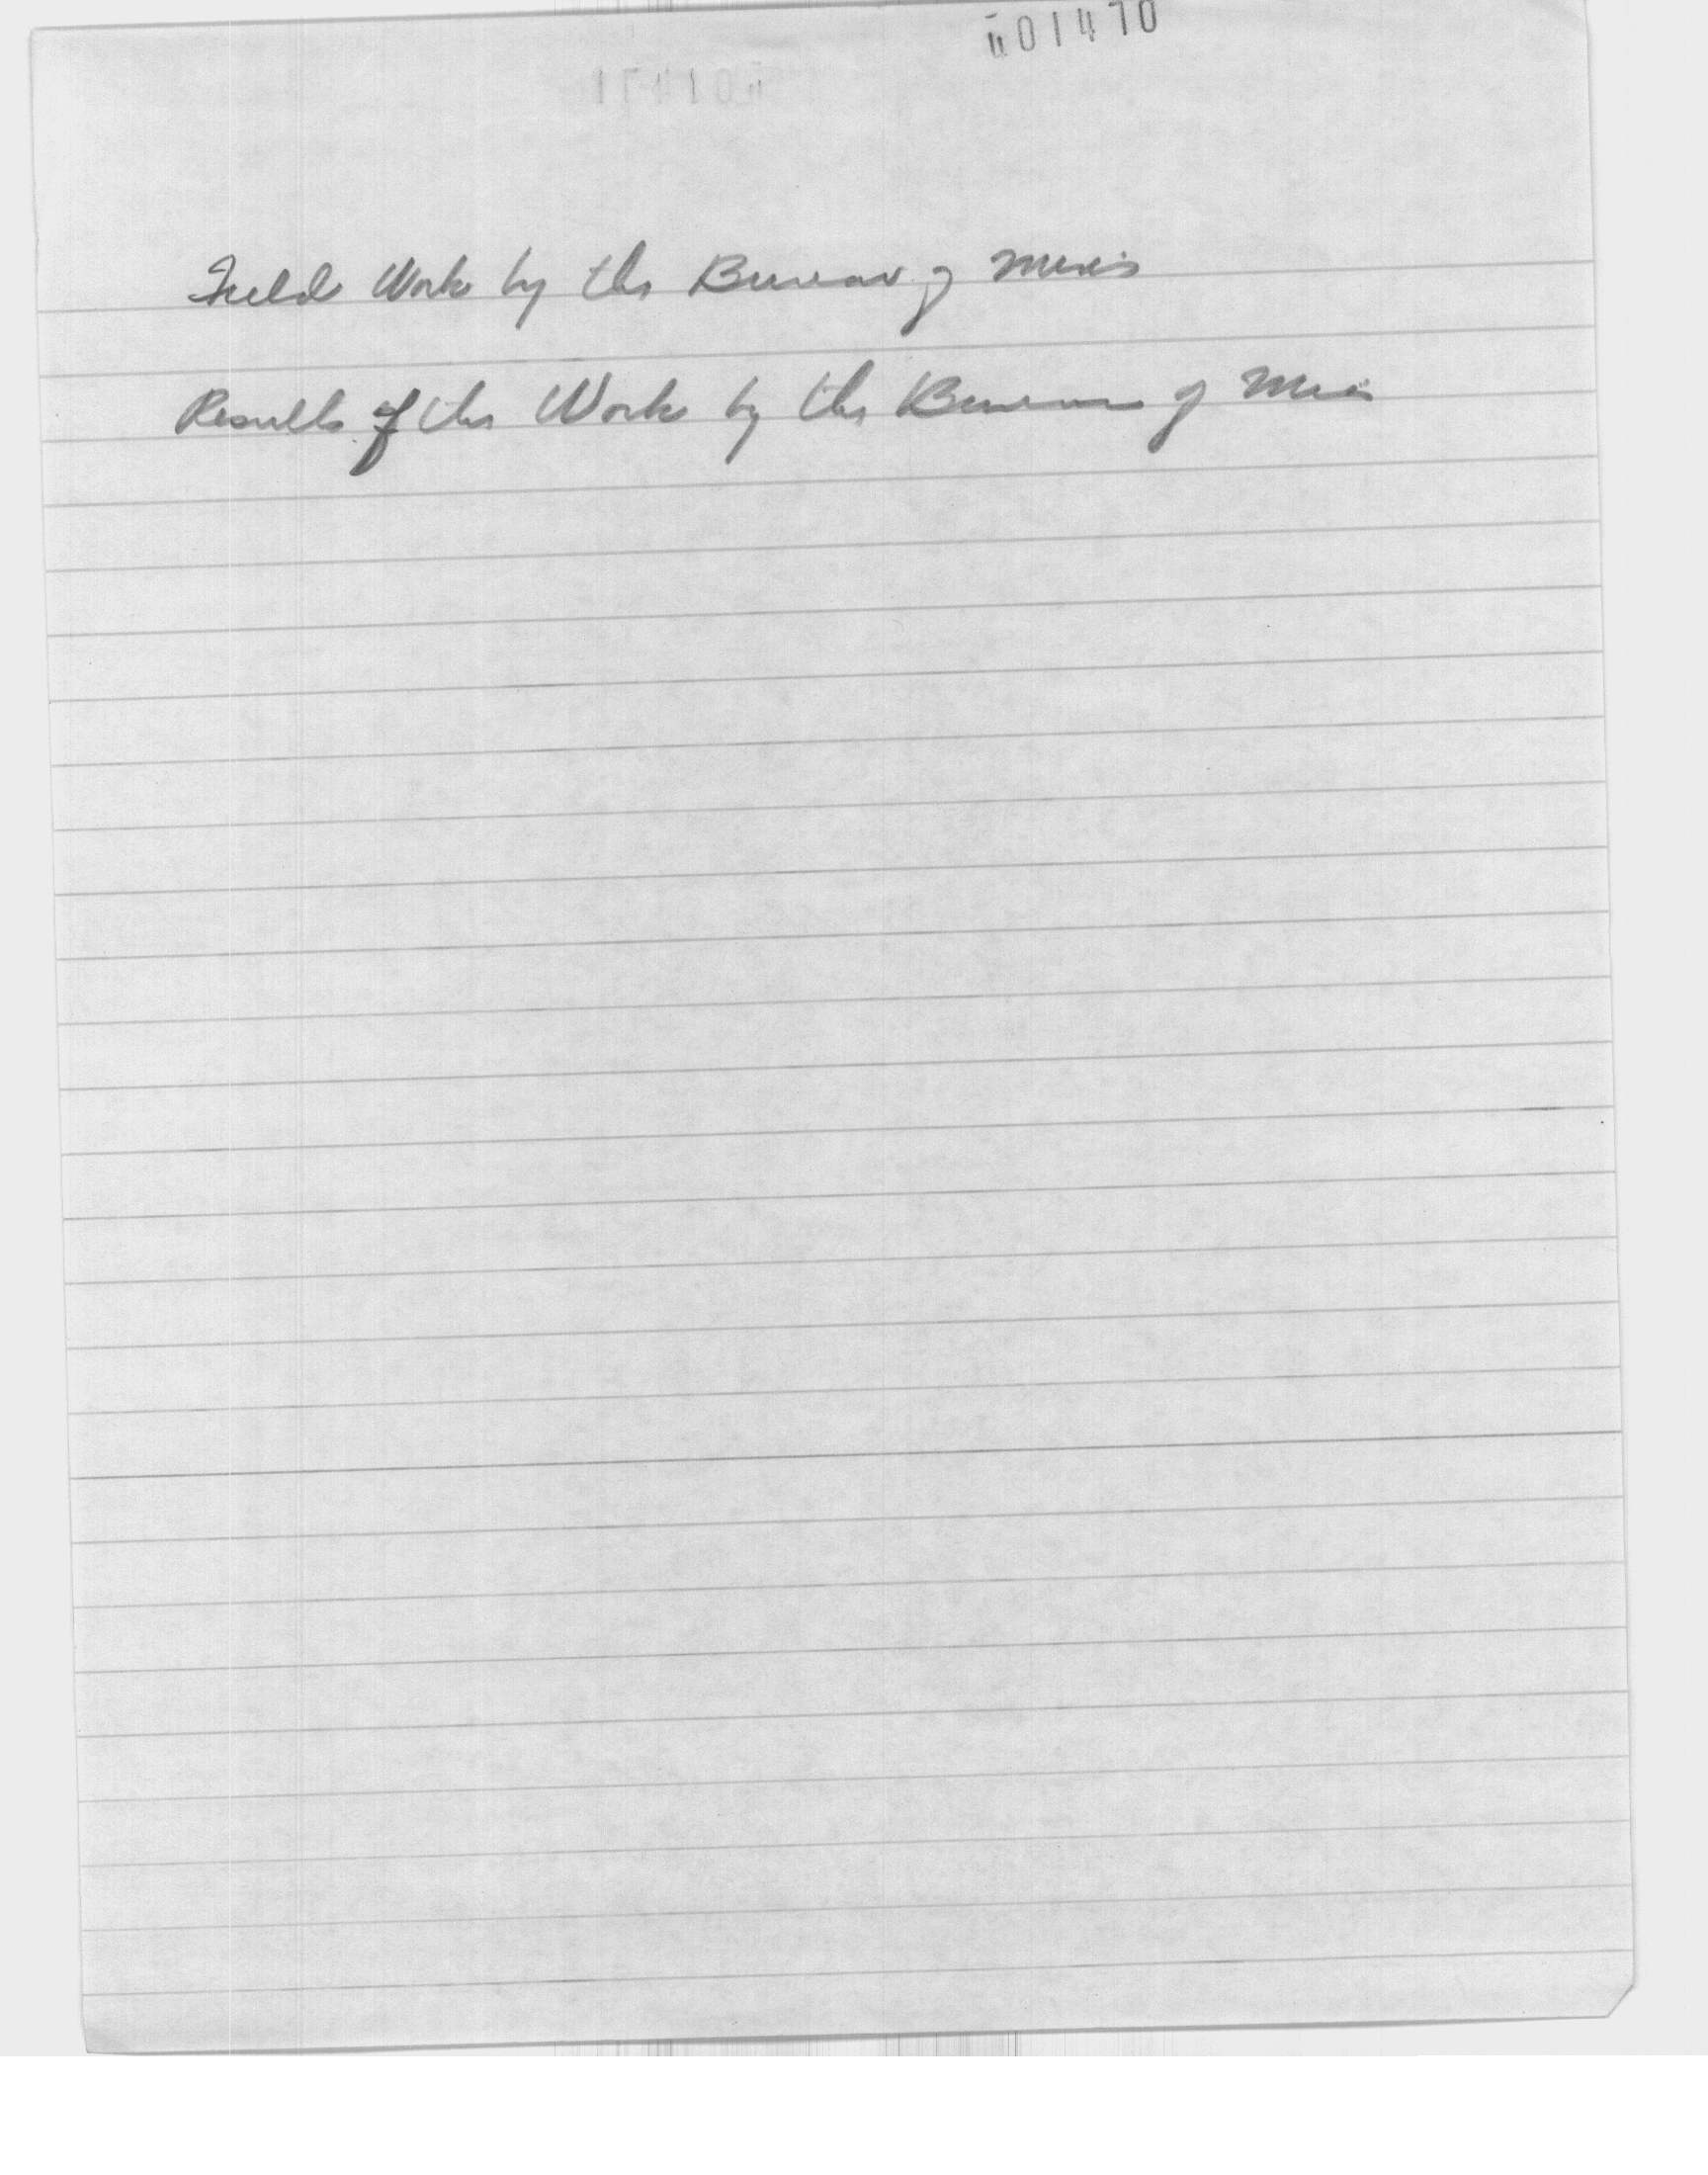 01470
Field Work by the Bureau of Mines
Results of the Work by the Bureau of Mines